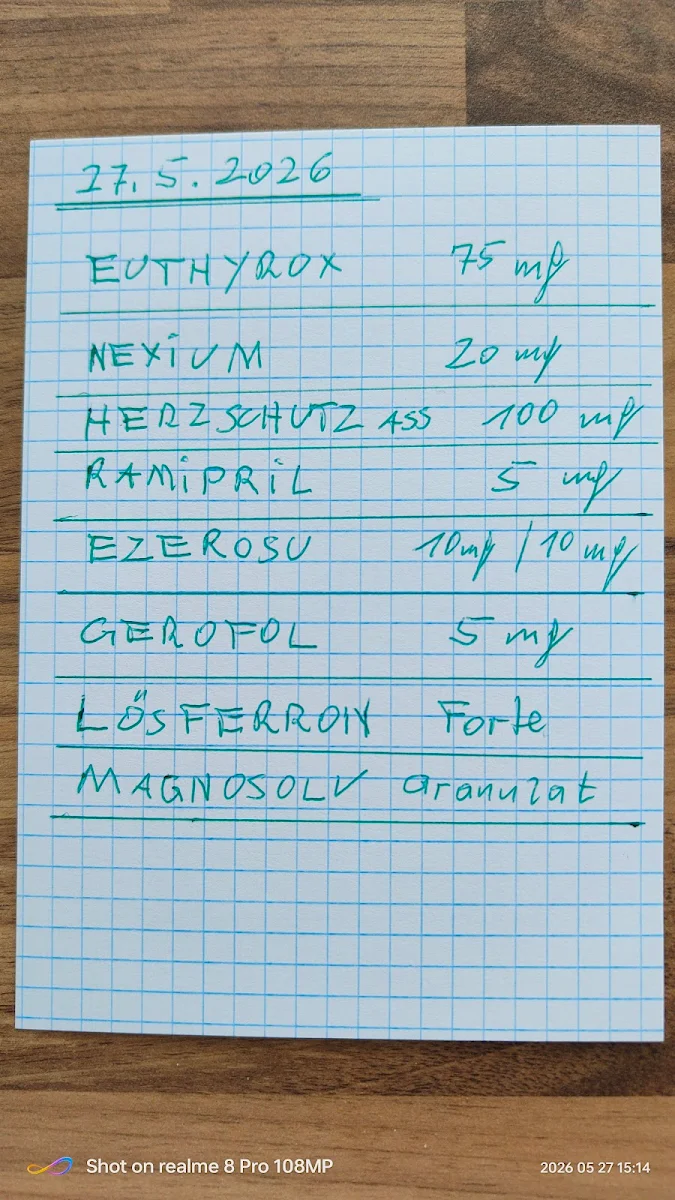 27.5.2026
EUTHYROX 75 mg
NEXiUM 20 mg
HERZSCHUTZ ASS 100 mg
RAMiPRiL 5 mg
EZEROSU 10mg / 10 mg
GEROFOL 5 mg
LÖSFERRON Forte
MAGNOSOLV Granulat
Shot on realme 8 Pro 108MP
2026 05 27 15:14